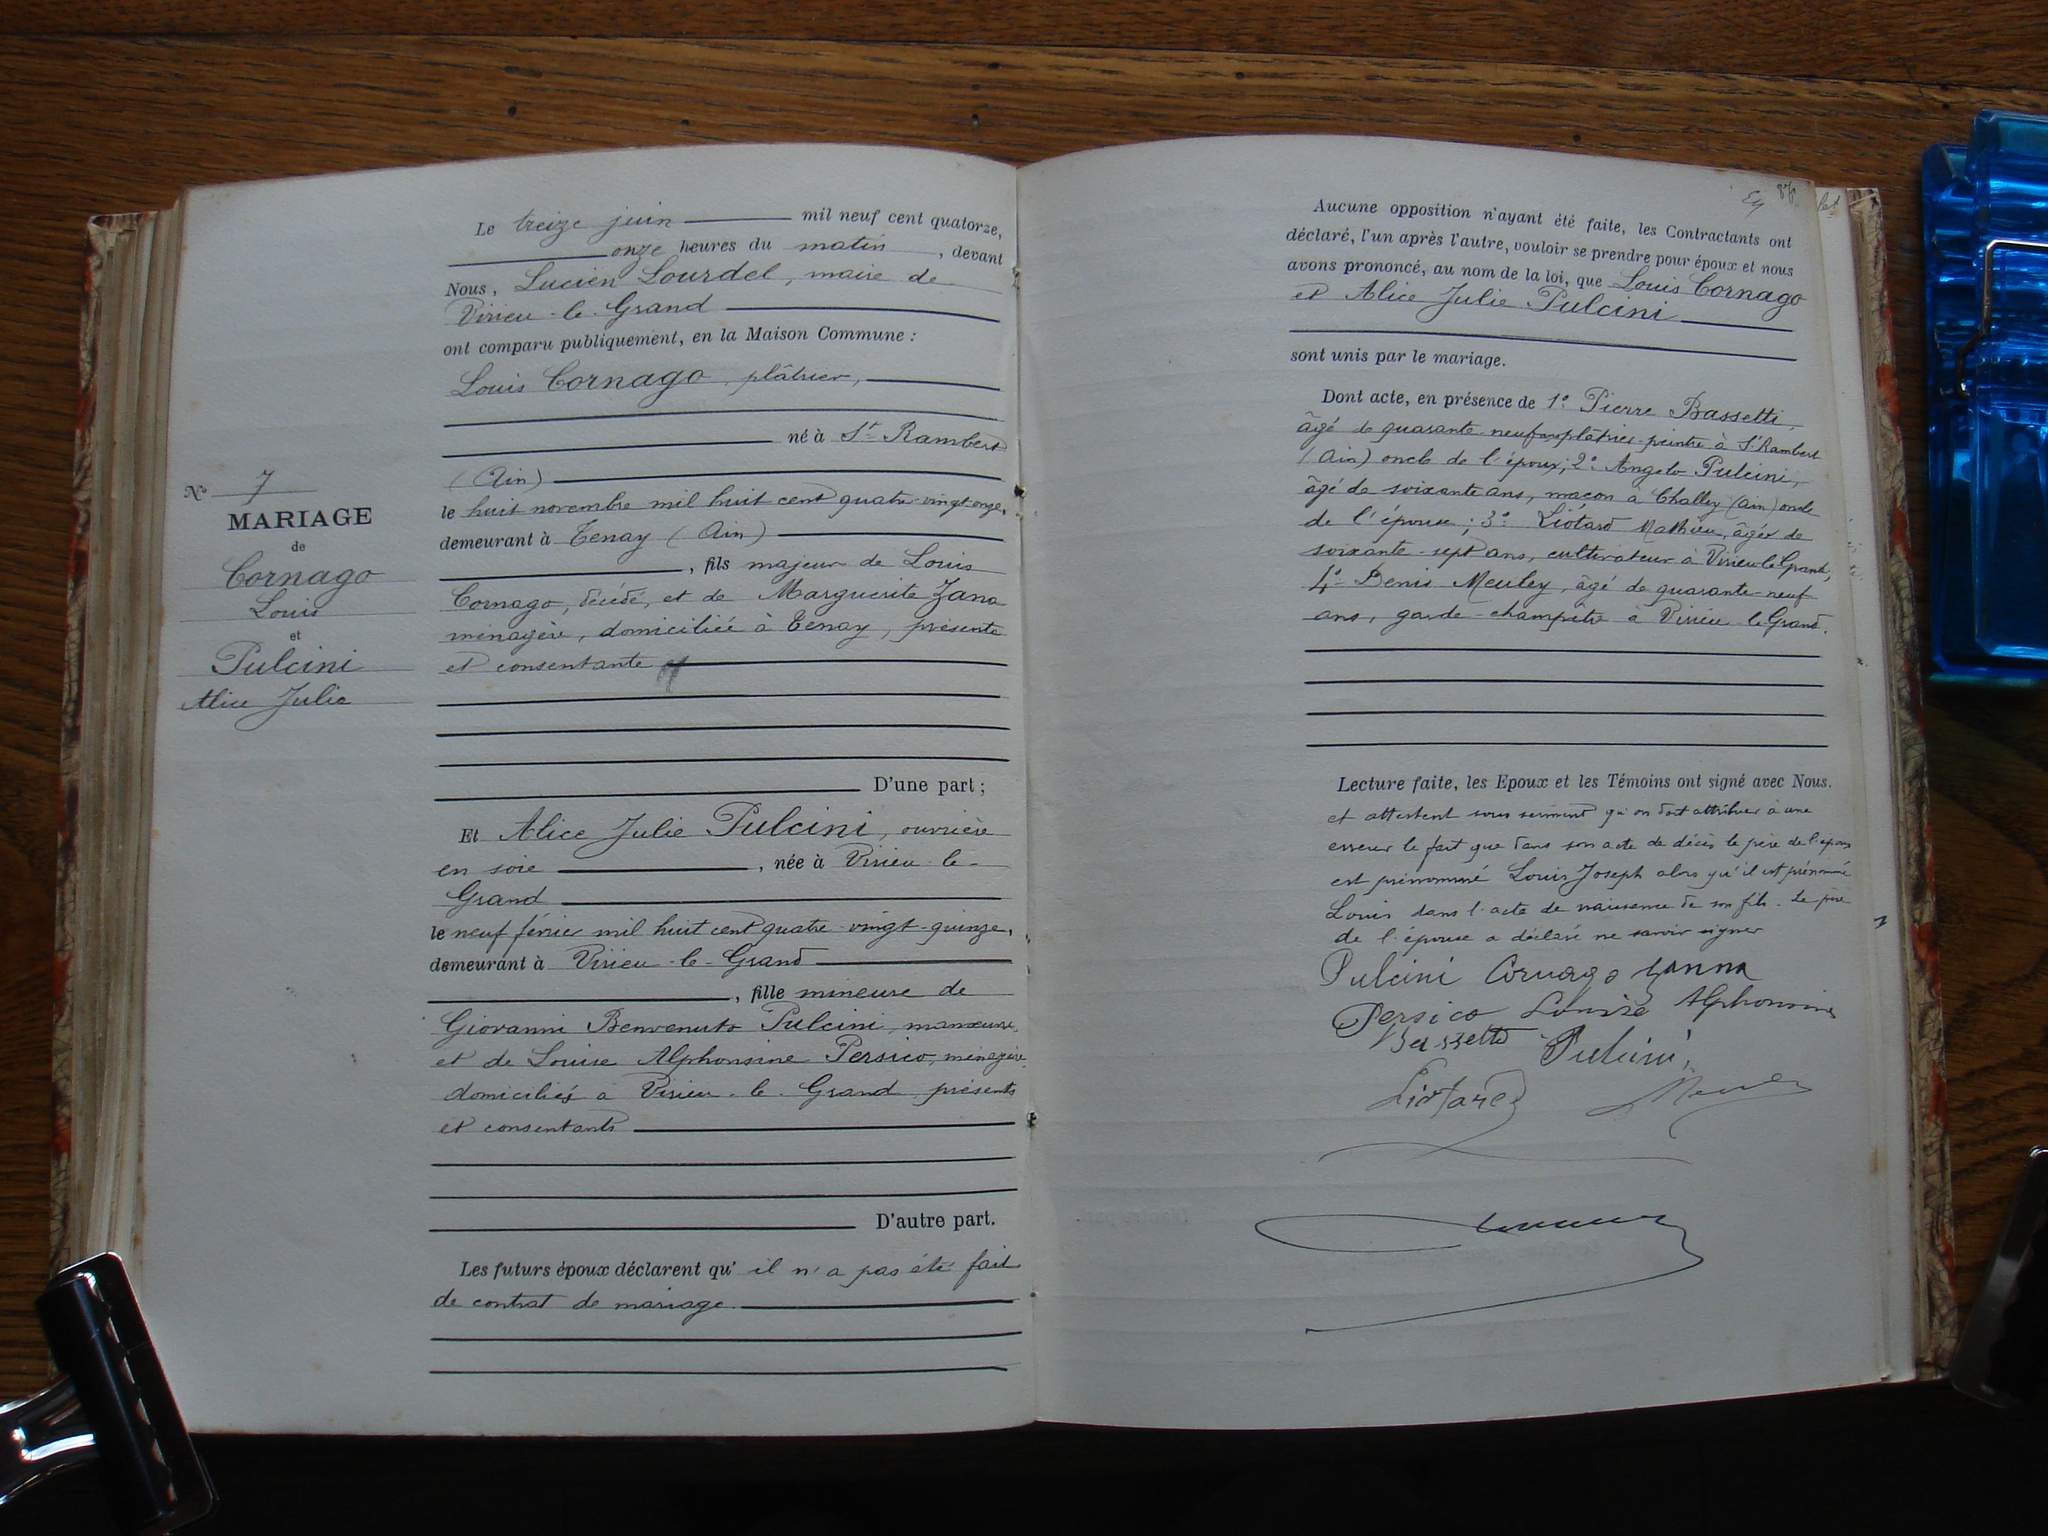 Nº 7
MARIAGE
de
Cornago
Louis
et
Pulcini
Alice Julie
Le treize juin mil neuf cent quatorze,
onze heures du matin, devant
Nous, Lucien Lourdel, maire de
Virieu-le-Grand
ont comparu publiquement, en la Maison Commune :
Louis Cornago, plâtrier,
né à St Rambert
(Ain)
le huit novembre mil huit cent quatre-vingt-onze,
demeurant à Tenay (Ain)
, fils majeur de Louis
Cornago, décédé, et de Marguerite Zana
ménagère, domiciliée à Tenay, présente
et consentante
D'une part ;
Et Alice Julie Pulcini, ouvrière
en soie, née à Virieu-le-
Grand
le neuf février mil huit cent quatre-vingt-quinze,
demeurant à Virieu-le-Grand
, fille mineure de
Giovanni Benvenuto Pulcini, manœuvre,
et de Louise Alphonsine Persico, ménagère
domiciliés à Virieu-le-Grand, présents
et consentants
D'autre part.
Les futurs époux déclarent qu'il n'a pas été fait
de contrat de mariage.
87
Aucune opposition n'ayant été faite, les Contractants ont
déclaré, l'un après l'autre, vouloir se prendre pour époux et nous
avons prononcé, au nom de la loi, que Louis Cornago
et Alice Julie Pulcini
sont unis par le mariage.
Dont acte, en présence de 1º Pierre Bassetti,
âgé de quarante-neuf ans plâtrier-peintre à St Rambert
(Ain) oncle de l'époux; 2º Angelo Pulcini,
âgé de soixante ans, maçon à Challey (Ain) oncle
de l'épouse; 3º Liotard Mathieu, âgé de
soixante-sept ans, cultivateur à Virieu-le-Grand,
4º Denis Meuley, âgé de quarante-neuf
ans, garde-champêtre à Virieu-le-Grand.
Lecture faite, les Epoux et les Témoins ont signé avec Nous.
et attestent sous serment qu'on doit attribuer à une
erreur le fait que dans son acte de décès le père de l'époux
est prénommé Louis Joseph alors qu'il est prénommé
Louis dans l'acte de naissance de son fils. Le père
de l'épouse a déclaré ne savoir signer
Pulcini Cornago Zanna
Persico Louise Alphonsine
Bassetti Pulcini
Liotard